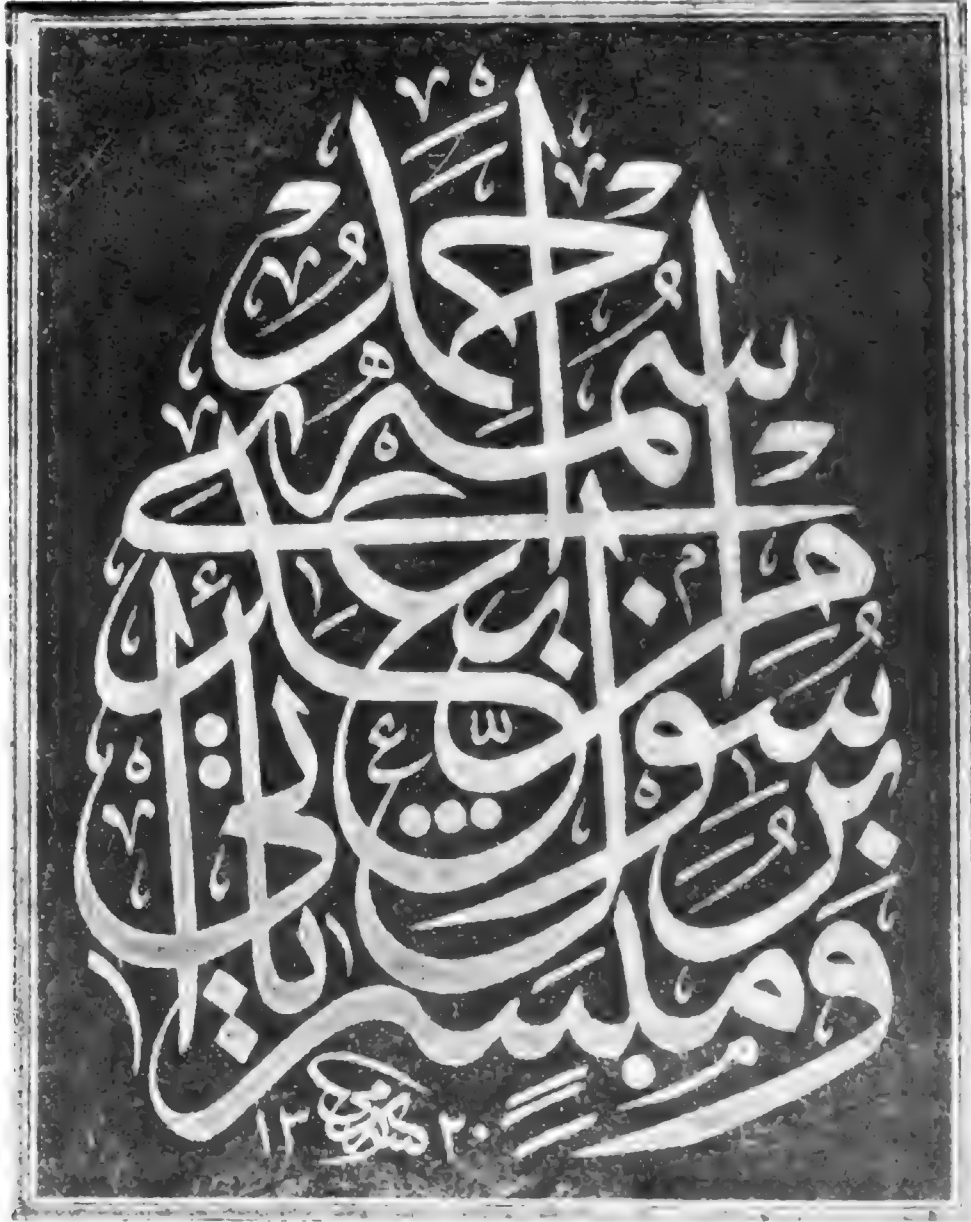 وَمُبَشِّرًا
بِرَسُولٍ يَأْتِي
مِنْ بَعْدِي
اسْمُهُ أَحْمَدُ
١٣٢٠